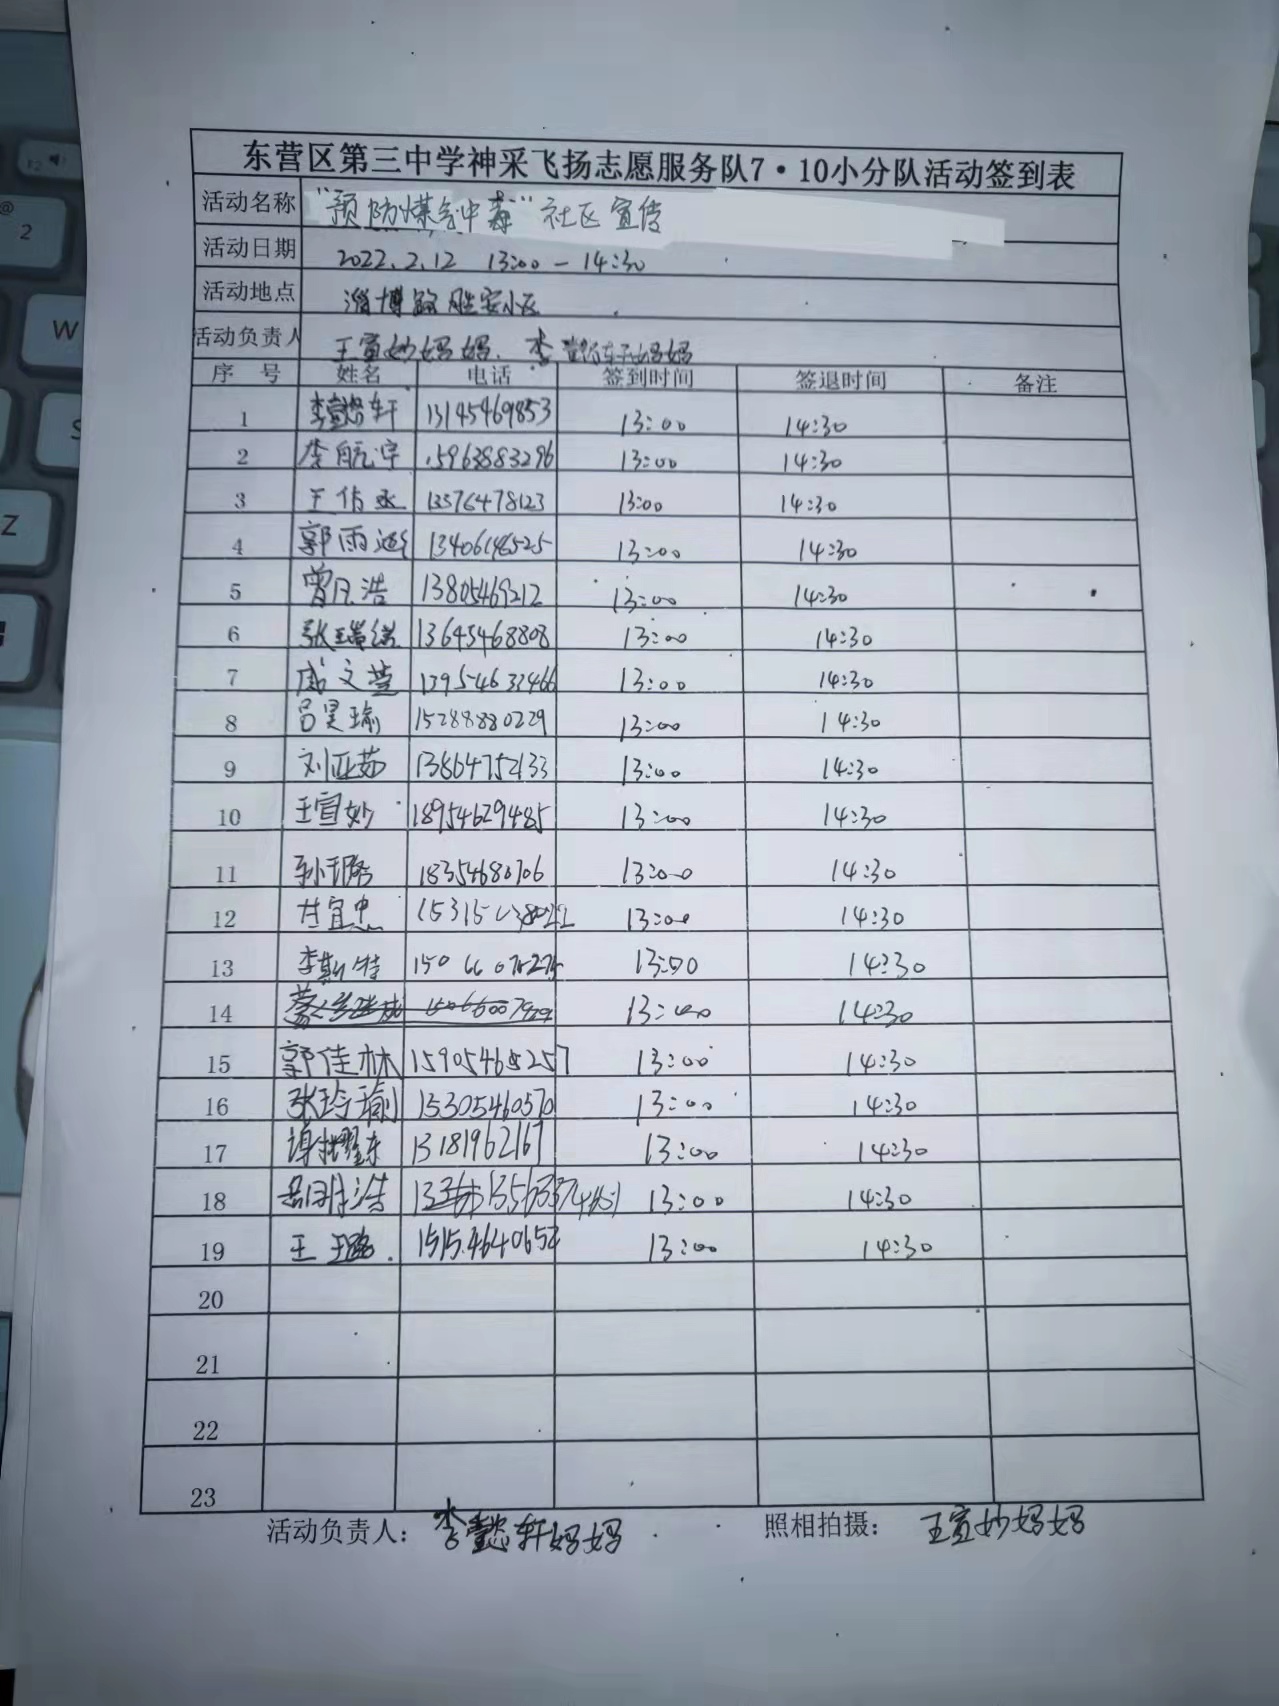 东营区第三中学神采飞扬志愿服务队7·10小分队活动签到表
活动名称 “预防煤气中毒”社区宣传
活动日期 2022.2.12 13:00-14:30
活动地点 淄博路胜安小区
活动负责人 王宣妙妈妈、李懿轩妈妈
序号 姓名 电话 签到时间 签退时间 备注
1 李懿轩 13145469853 13:00 14:30
2 李航宇 15963883296 13:00 14:30
3 13576478123 13:00 14:30
4 郭雨涵 13406146525 13:00 14:30
5 曾凡浩 13805469212 13:00 14:30
6 13645468808 13:00 14:30
7 戚文萱 13:00 14:30
8 吕昊瑜 15288880229 13:00 14:30
9 刘亚茹 13864752133 13:00 14:30
10 王宣妙 18954629485 13:00 14:30
11 孙璐 18354680706 13:00 14:30
12 13:00 14:30
13 李斯特 13:00 14:30
14 13:00 14:30
15 郭佳林 15905465257 13:00 14:30
16 张玲瑜 15305460570 13:00 14:30
17 谭耀东 13181962167 13:00 14:30
18 13:00 14:30
19 王璐 13:00 14:30
20
21
22
23
活动负责人：李懿轩妈妈 照相拍摄：王宣妙妈妈